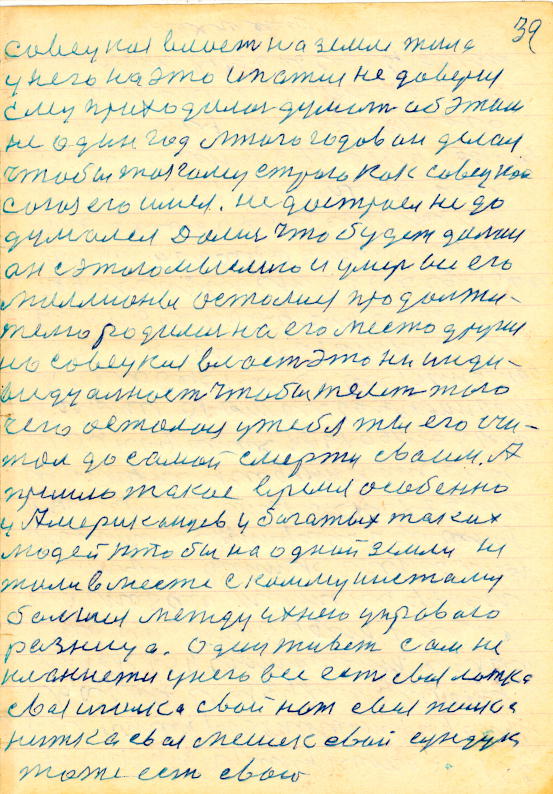 39
совецкая власт на земле жила
у него на это и потом не доверия
ему приходилос думат об этом
не один год много годов он делал
чтобы там кому строго как совецкой
союз его имел. не достроел не до
думался далш что будет далш
он с этого мыслию и умер вse его
миллионы осталис продолжи-
тело родилис на его место други
но совецкая власт это ни инди-
видуалност чтобы телят того
чего осталос у тебя ты его счи-
тал до самой смерти своим. А
пришло такое время особенно
у Американцев у богатых таких
людей чтобы на одной земли
жоли вместе с коммунистами
болшая между ихнего
разница. Один живет сам не
у него все ест своя ложка
своя иголка свой нож своя
нитка своя мешек свой сундук
тоже ест свою